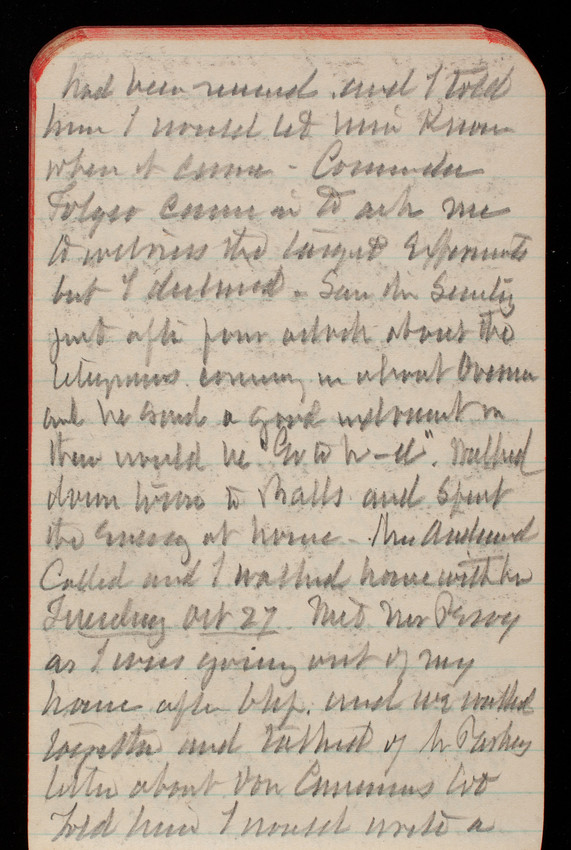 had been received and I told
him I would let him Know
when it came - Commander
Folger came in to ask me
to witness the target Experiments
but I declined - Saw the Secretary
just after four oclock about the
telegrams coming in about
and he said a good endorsement on
them would be "Go to h-ll". Walked
down town to Halls and Spent
the Evening at home - Mrs Andrews
Called and I walked home with her
Tuesday Oct 27. Met Mr
as I was going out of my
house after bkf. and we walked
together and talked of Mr
letter about Von
told him I would write a